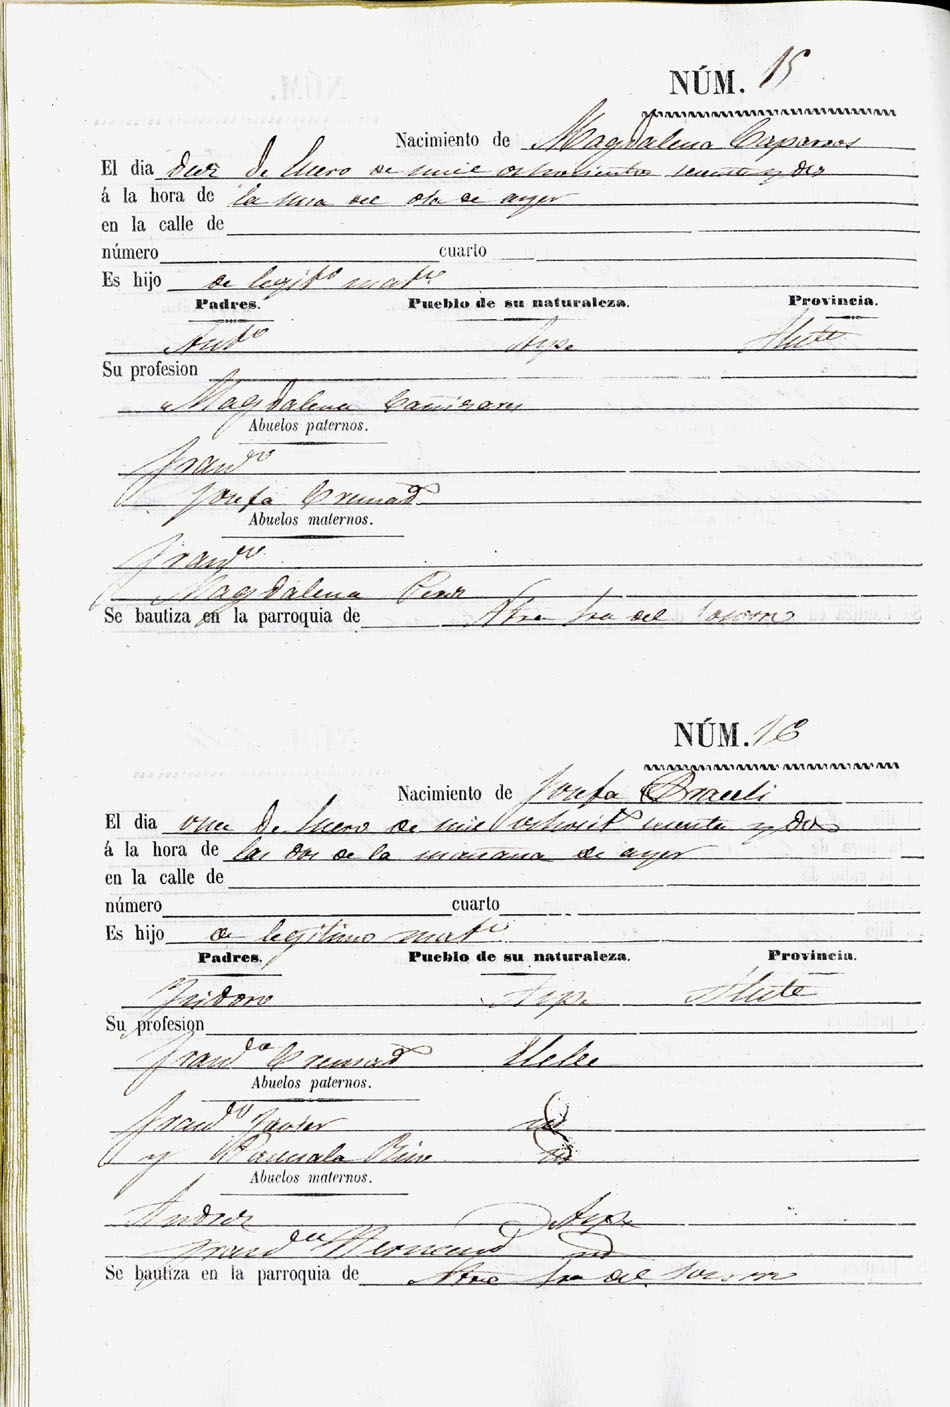 NÚM. 15
Nacimiento de Magdalena Caparros
El dia diez de Enero de mil ochocientos sesenta y dos
á la hora de la una del dia de ayer
en la calle de
número cuarto
Es hijo de legitº matº
Padres. Pueblo de su naturaleza. Provincia.
Antº Aspe Alicte
Su profesion
Magdalena Cañizares
Abuelos paternos.
Francº
Josefa Cremads
Abuelos maternos.
Francº
Magdalena Perez
Se bautiza en la parroquia de Ntra Sra del Socorro
NÚM. 16
Nacimiento de Josefa
El dia once de Enero de mil ochocits sesenta y dos
á la hora de las dos de la mañana de ayer
en la calle de
número cuarto
Es hijo de legitimo matº
Padres. Pueblo de su naturaleza. Provincia.
Isidoro Aspe Alicte
Su profesion
Francca Cremads Elche
Abuelos paternos.
Francº Javier id
y Pascuala id
Abuelos maternos.
Andres Aspe
Francca id
Se bautiza en la parroquia de Ntra Sra del Socorro